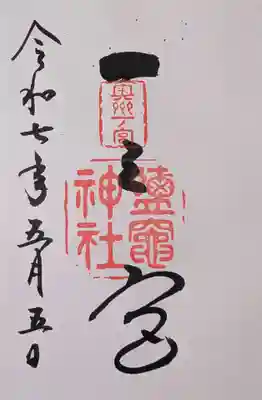 一之宮
奥州一宮
鹽竈
神社
令和七年五月五日